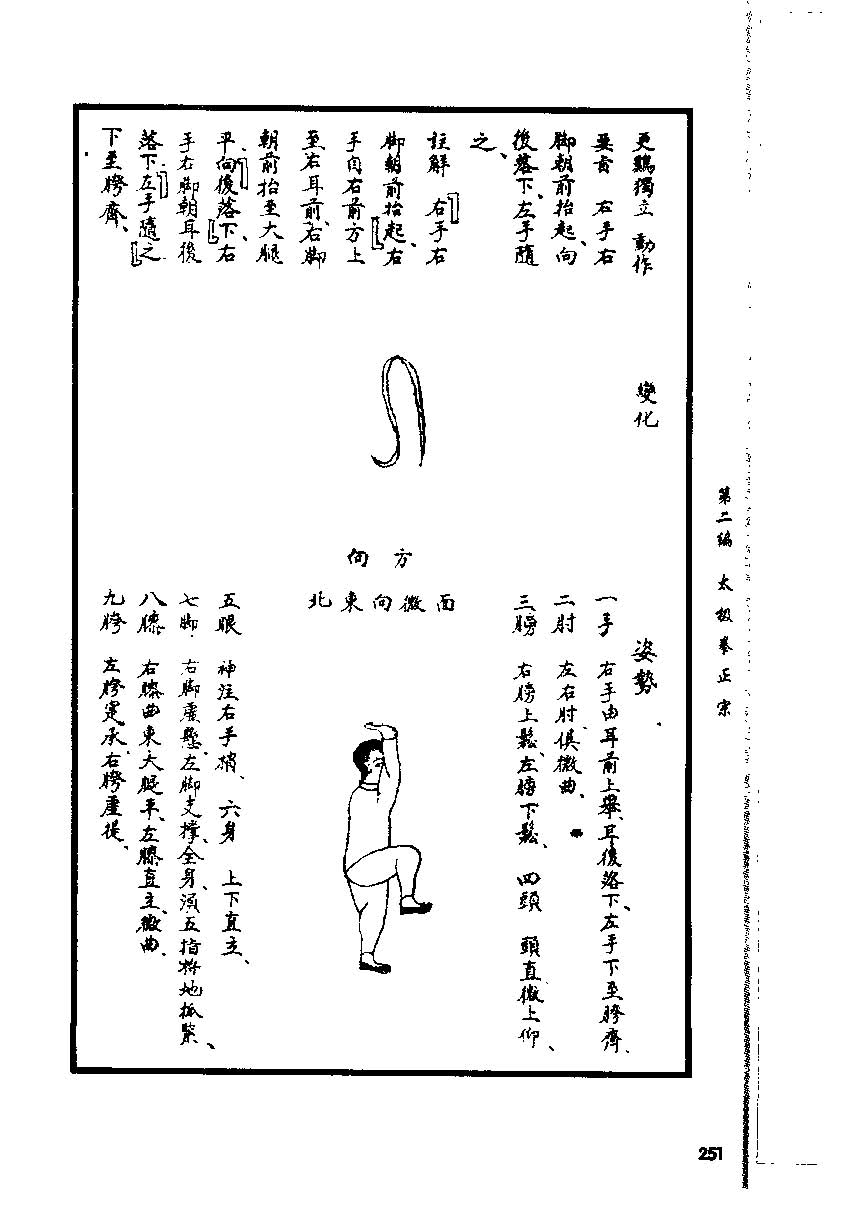 更鷄獨立 動作
要言 右手右
脚朝前抬起、向
後落下、左手隨
之、
註解 「右手右
脚朝前抬起」、右
手自右前方上
至右耳前、右脚
朝前抬至大腿
平、「向後落下」、右
手右脚朝耳後
落下、「左手隨之」
下至胯齊、
變化
方向
面微向東北
姿勢
一手 右手由耳前上舉、耳後落下、左手下至胯齊、
二肘 左右肘俱微曲、
三膀 右膀上鬆、左膀下鬆、 四頭 頭直微上仰、
五眼 神注右手梢、 六身 上下直立、
七脚 右脚虛懸、左脚支撐全身、須五指將地抓緊、
八膝 右膝曲東大腿平、左膝直主、微曲、
九胯 左胯寔承、右胯虛提、
第二編 太极拳正宗
251